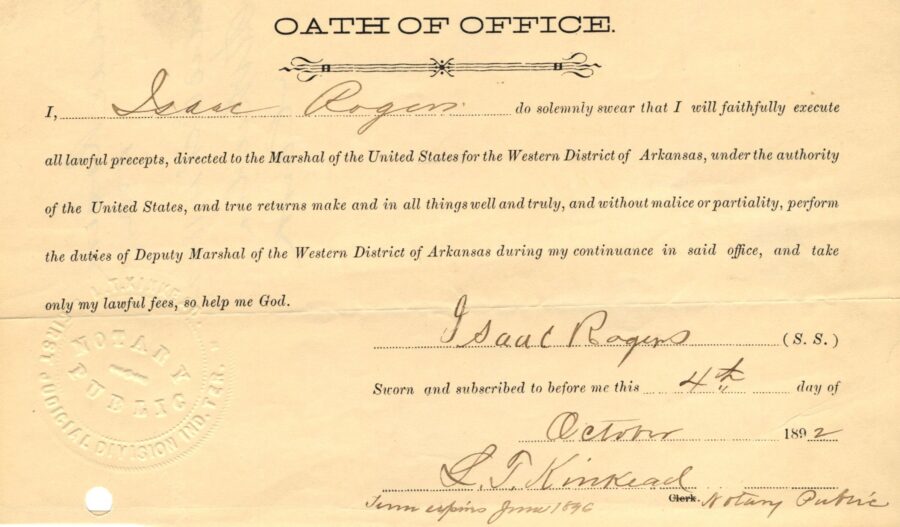 OATH OF OFFICE.
I, Isaac Rogers do solemnly swear that I will faithfully execute
all lawful precepts, directed to the Marshal of the United States for the Western District of Arkansas, under the authority
of the United States, and true returns make and in all things well and truly, and without malice or partiality, perform
the duties of Deputy Marshal of the Western District of Arkansas during my continuance in said office, and take
only my lawful fees, so help me God.
Isaac Rogers (S. S.)
Sworn and subscribed to before me this 4th day of
October 1892
L. T. Kinkead
Clerk. Notary Public
Term expires June 1896
NOTARY PUBLIC
FIRST JUDICIAL DIVISION IND. TER.